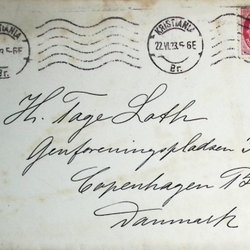 KRISTIANIA
22.VI.23.5-6E
Br.
KRISTIANIA
23.5-6E
Br.
H. Tage Loth
Genforeningspladsen
Copenhagen
Danmark